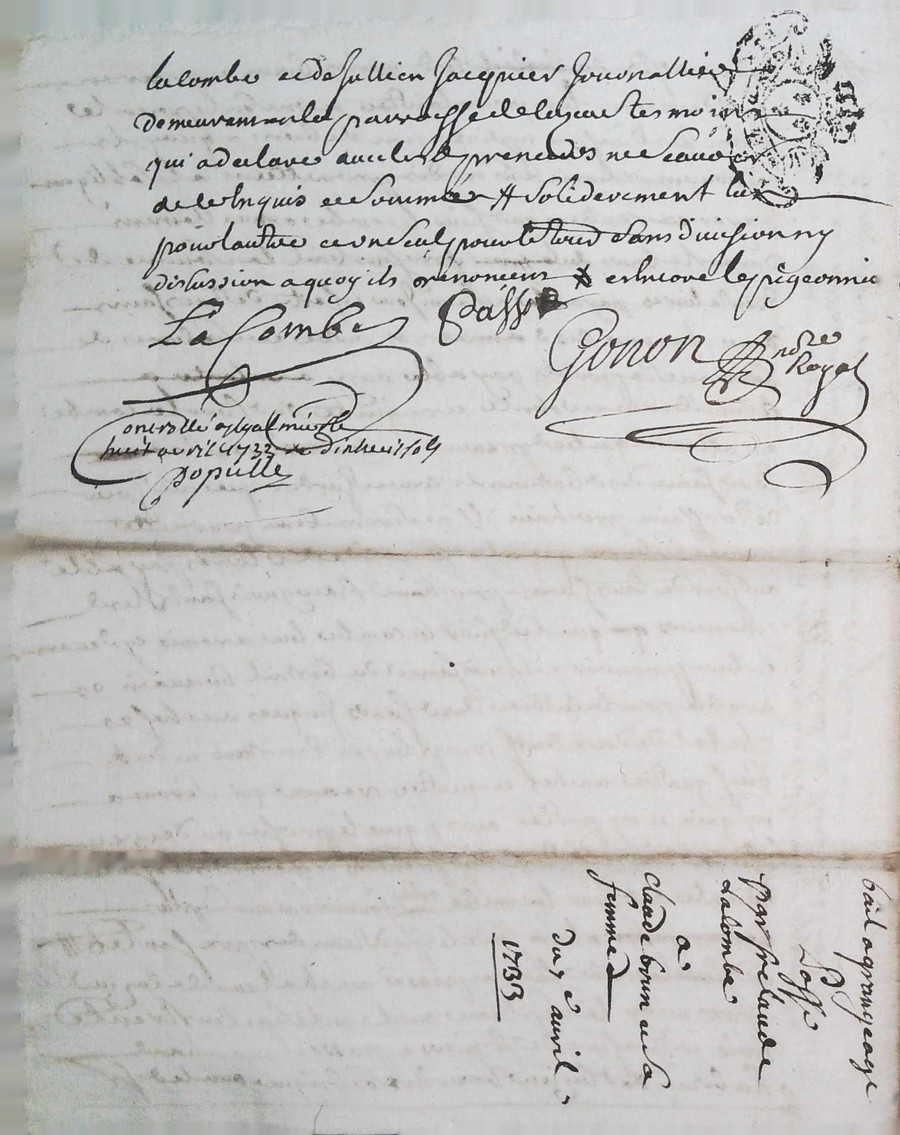 lacombe et de Jullien Jacquier Journallier
demeurement la parroisse de la
qui a declaré avec les preneurs ne scavoir
de ce enquis et sommé # soliderement lun
pour lautre et un seul pour le tout sans division ny
discussion a quoy ils renoncent # et encore le pigeonnie
LaCombe
Gonon
nore
Royal
Controllé
huit avril 1733
populle
bail a grangeage
par sr claude
Lacombe
a
claude brun et sa
femme
du 7e avril
1733